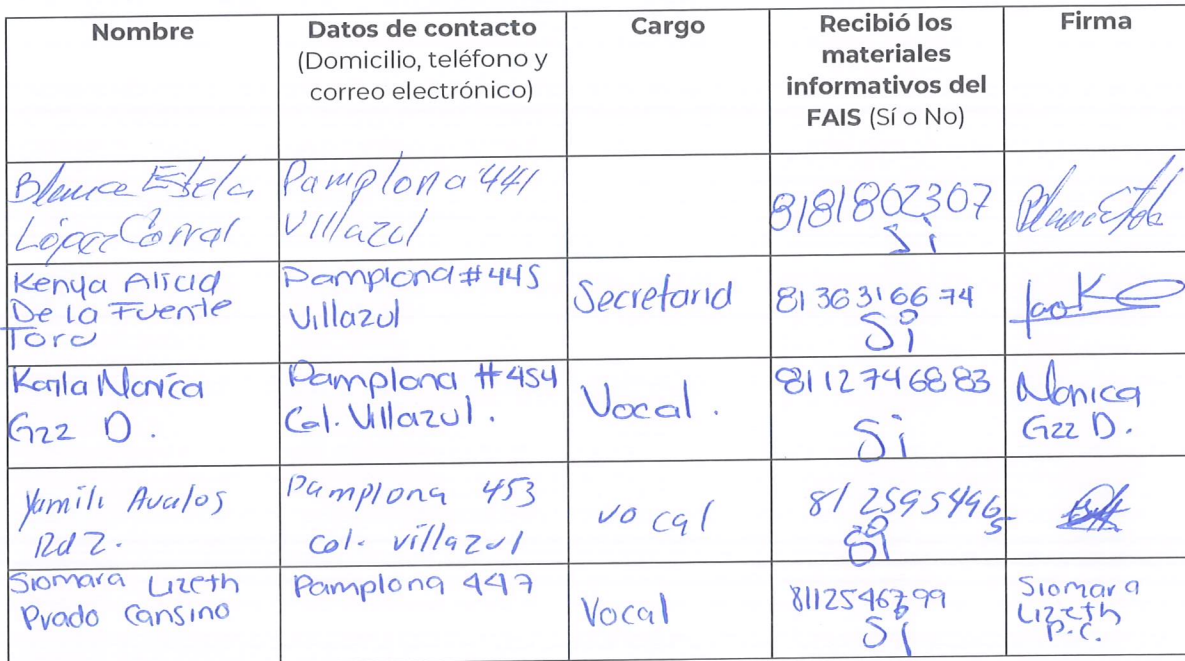 Nombre
Datos de contacto
(Domicilio, teléfono y
correo electrónico)
Cargo
Recibió los
materiales
informativos del
FAIS (Sí o No)
Firma
Blanca Estela
López Corral
Pamplona 441
Villazul
8181802307
Si
Blanca Estela
Kenya Alicia
De la Fuente
Toro
Pamplona #445
Villazul
Secretaria
8136316674
Si
Karla Monica
Gzz D.
Pamplona #454
Col. Villazul.
Vocal.
8112746883
Si
Monica
Gzz D.
Yamili Avalos
Rdz.
Pamplona 453
col. villazul
vocal
8125954965
Si
Siomara Lizeth
Prado Cansino
Pamplona 447
Vocal
Si
Siomara
Lizeth
P.C.